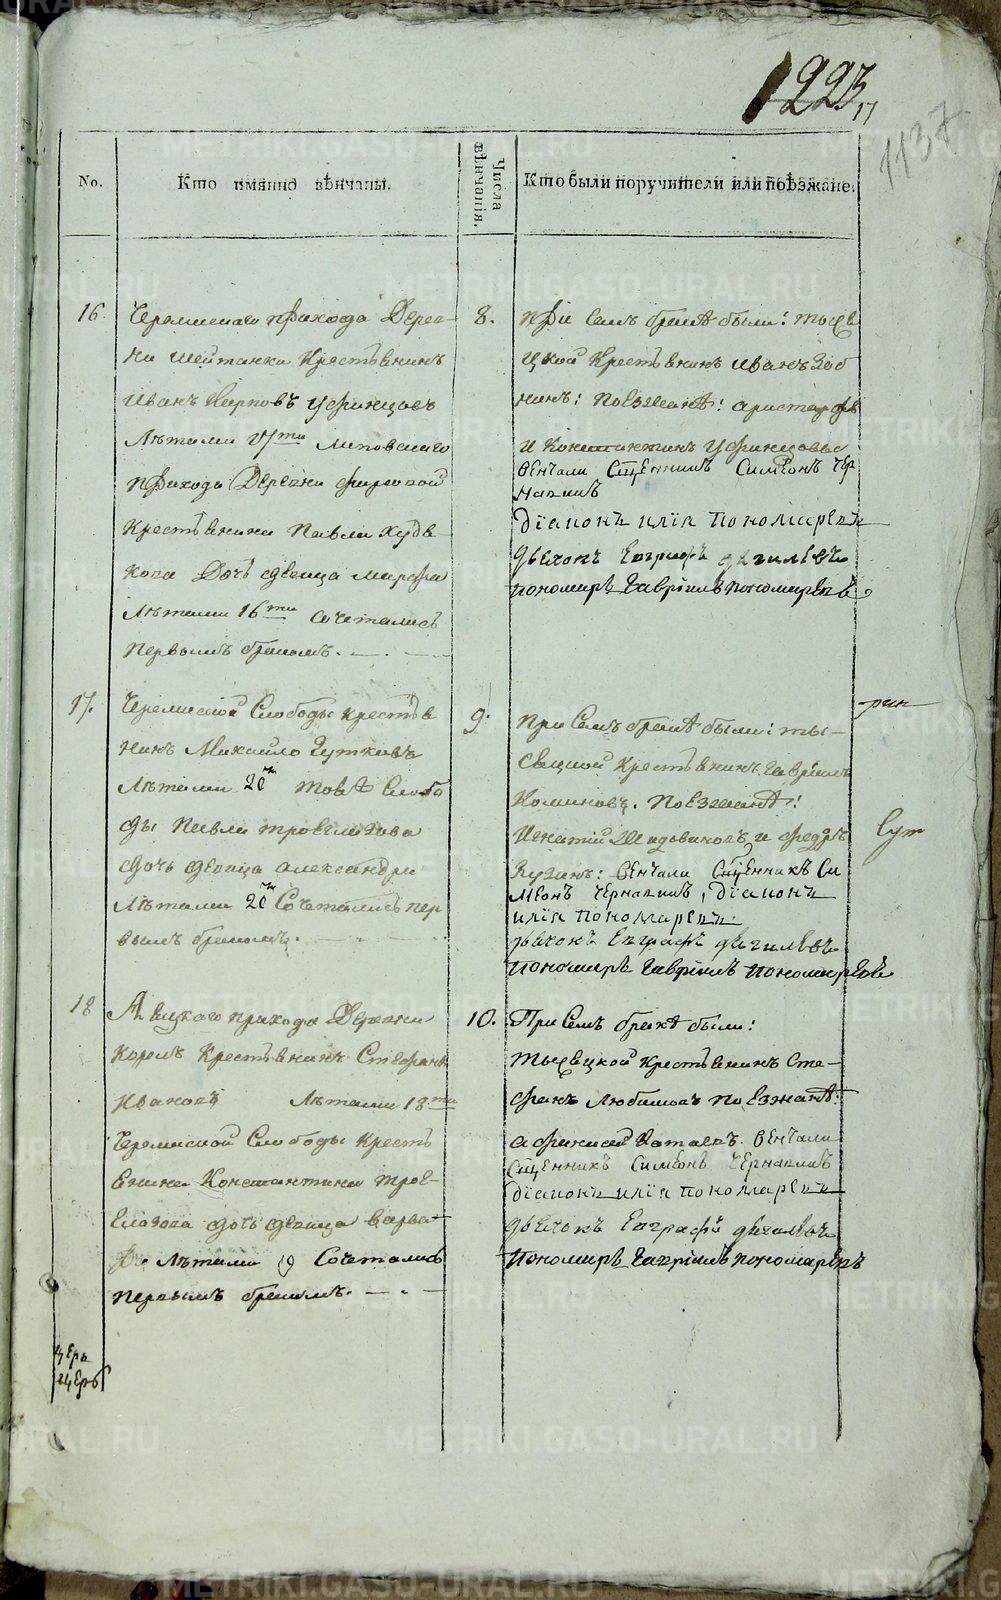 1223
17
1137
No.
Кто имянно вѣнчаны.
Числа вѣнчанія.
Кто были поручители или поѣзжане.
16.
Черемискаго прихода Дерев-
ни Шейтанки Крестьянинъ
Иванъ Карповъ Уфинцовъ
Лѣтами 17ти Липовскаго
прихода Деревни Фирсовой
Крестьянина Павла Худя-
кова Дочь девица Марфа
Лѣтами 16ти сочетались
первымъ бракомъ.
8.
При Семъ бракѣ были: тысец
цкой Крестьянинъ Иванъ Зоб
нинъ: Поезжанѣ: Аристархъ
и Константинъ Уфинцовы
венчали Сщенникъ Симеонъ Чер
навинъ
Діаконъ Илія Пономаревъ
дьячокъ Евграфъ
пономарь Гавріилъ Пономаревъ
17.
Черемиской Слободы крестья
нинъ Михайло Гутковъ
Лѣтами 20ти тояже Слобо
ды Павла
дочь девица Александра
Лѣтами 20ти Сочетались пер
вымъ бракомъ.
9.
При Семъ бракѣ были: ты-
сяцкой Крестьянинъ Гавріилъ
Коминовъ. Поезжанѣ:
Игнатій и Федоръ
Кузинъ: венчали Сщенникъ Си
меонъ Чернавинъ, Діаконъ
Илія Пономаревъ
дьячокъ Евграфъ
пономарь Гавріилъ Пономаревъ
18
прихода Деревни
Крестьянинъ Стефанъ
Ивановъ Лѣтами 18ти
Черемиской Слободы Кресть
янина Константина
дочь девица Варва-
ра Лѣтами 19 Сочетались
первымъ бракомъ.
10.
При Семъ бракѣ были:
тысяцкой Крестьянинъ Сте-
фанъ Любимовъ Поезжанѣ:
Афанасей Катаевъ. венчали
Сщенникъ Симеонъ Чернавинъ
Діаконъ Илія Пономаревъ
дьячокъ Евграфъ
пономарь Гавріилъ Пономаревъ
METRIKI.GASO-URAL.RU